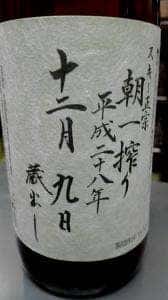 天寿正宗
朝一搾り
平成二十八年
十二月九日
蔵出し